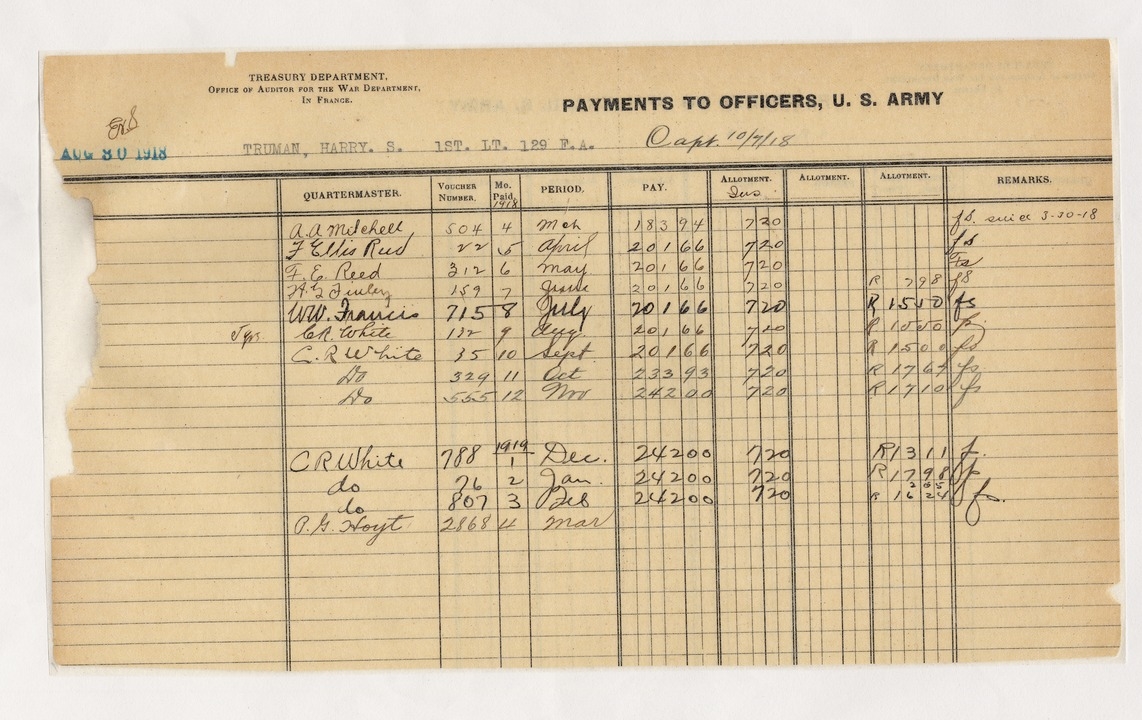 TREASURY DEPARTMENT,
OFFICE OF AUDITOR FOR THE WAR DEPARTMENT,
IN FRANCE.
PAYMENTS TO OFFICERS, U. S. ARMY
AUG 30 1918 TRUMAN, HARRY. S. 1ST. LT. 129 F.A. Capt. 10/7/18
QUARTERMASTER. VOUCHER NUMBER. Mo. Paid. 1918 PERIOD. PAY. ALLOTMENT. Ins. ALLOTMENT. ALLOTMENT. REMARKS.
A.A. Mitchell 504 4 Mch 183 94 7 20 fs. since 3-30-18
F Ellis Reed 22 5 April 201 66 7 20 fs
F. E. Reed 312 6 May 201 66 7 20 fs
Finley 159 7 June 201 66 7 20 R 7 98 fs
W.W. Francis 715 8 July 201 66 7 20 R 15 50 fs
5 yrs. C.R. White 132 9 Aug. 201 66 7 20 R 15 50
C. R White 35 10 Sept 201 66 7 20 R 15 00 fs
Do 329 11 Oct 233 93 7 20 R 17 64 fs
Do 555 12 Nov 242 00 7 20 R 17 10 fs
1919
C R White 788 1 Dec. 242 00 7 20 R 13 11 f.
do 76 2 Jan. 242 00 7 20 R 17 98 fs
do 807 3 Feb 242 00 7 20 R 16 24 fs.
P. G. Hoyt 2868 4 Mar